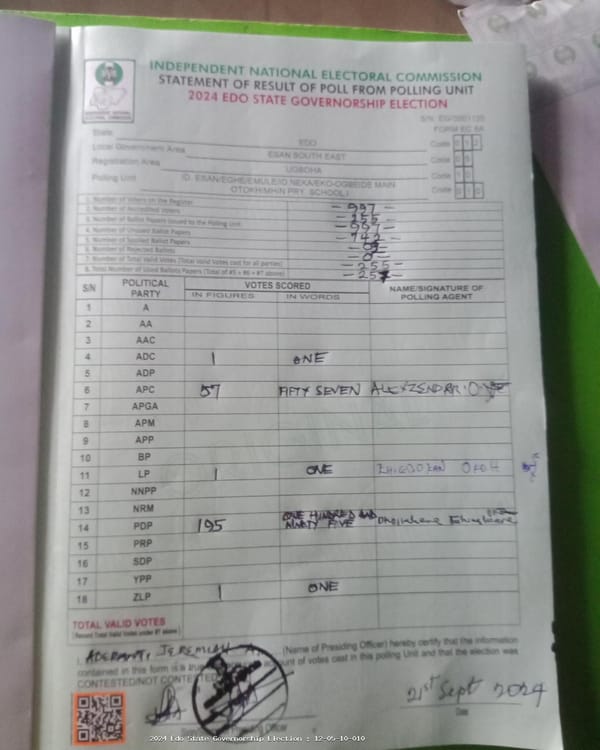 INDEPENDENT NATIONAL ELECTORAL COMMISSION
STATEMENT OF RESULT OF POLL FROM POLLING UNIT
2024 EDO STATE GOVERNORSHIP ELECTION
FORM EC 8A
State EDO Code 1 2
Local Government Area ESAN SOUTH EAST Code 0 5
Registration Area UGBOHA Code 1 0
Polling Unit ID. ESAN/EGHE/EMULE/ID NEKA/EKO-OGBEIDE MAIN Code 0 1 0
OTOKHIMHIN PRY. SCHOOL I
1. Number of Voters on the Register - 997 -
2. Number of Accredited Voters - 255 -
3. Number of Ballot Papers Issued to the Polling Unit - 997 -
4. Number of Unused Ballot Papers - 742 -
5. Number of Spoiled Ballot Papers
6. Number of Rejected Ballots - 0 -
7. Number of Total Valid Votes (Total Valid Votes cast for all parties) - 255 -
8. Total Number of Used Ballots Papers (Total of #5 + #6 + #7 above)
S/N POLITICAL PARTY VOTES SCORED NAME/SIGNATURE OF POLLING AGENT
IN FIGURES IN WORDS
1 A
2 AA
3 AAC
4 ADC 1 ONE
5 ADP
6 APC 57 FIFTY SEVEN
7 APGA
8 APM
9 APP
10 BP
11 LP 1 ONE OKOH
12 NNPP
13 NRM
14 PDP 195 ONE HUNDRED AND NINTY FIVE
15 PRP
16 SDP
17 YPP
18 ZLP 1 ONE
TOTAL VALID VOTES
(Record Total Valid Votes under #7 above)
I, JEREMIAH A. (Name of Presiding Officer) hereby certify that the information
contained in this form is a true account of votes cast in this polling Unit and that the election was
CONTESTED/NOT CONTESTED
21st Sept 2024
Date
2024 Edo State Governorship Election : 12-05-10-010